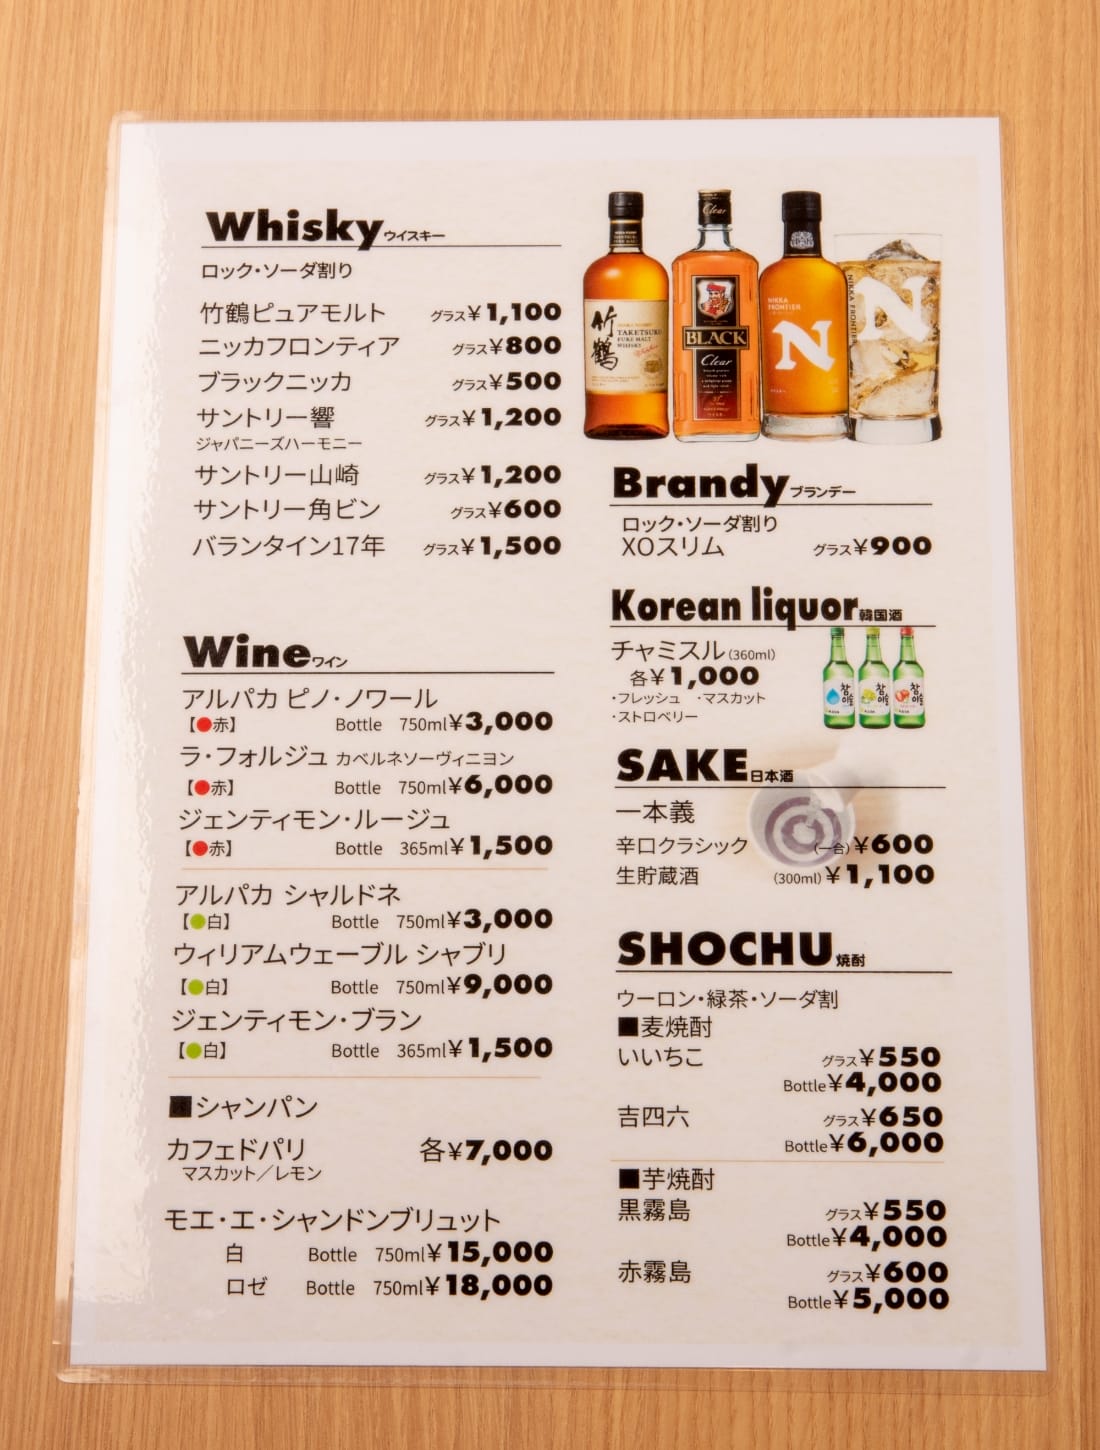 Whisky ウイスキー
ロック・ソーダ割り
竹鶴ピュアモルト グラス¥1,100
ニッカフロンティア グラス¥800
ブラックニッカ グラス¥500
サントリー響 グラス¥1,200
ジャパニーズハーモニー
サントリー山崎 グラス¥1,200
サントリー角ビン グラス¥600
バランタイン17年 グラス¥1,500
Wine ワイン
アルパカ ピノ・ノワール
【●赤】 Bottle 750ml¥3,000
ラ・フォルジュ カベルネソーヴィニヨン
【●赤】 Bottle 750ml¥6,000
ジェンティモン・ルージュ
【●赤】 Bottle 365ml¥1,500
アルパカ シャルドネ
【●白】 Bottle 750ml¥3,000
ウィリアムウェーブル シャブリ
【●白】 Bottle 750ml¥9,000
ジェンティモン・ブラン
【●白】 Bottle 365ml¥1,500
■シャンパン
カフェドパリ 各¥7,000
マスカット／レモン
モエ・エ・シャンドンブリュット
白 Bottle 750ml¥15,000
ロゼ Bottle 750ml¥18,000
竹鶴
TAKETSURU
PURE MALT
WHISKY
Clear
BLACK
Clear
NIKKA
FRONTIER
N
NIKKA FRONTIER
N
Brandy ブランデー
ロック・ソーダ割り
XOスリム グラス¥900
Korean liquor 韓国酒
チャミスル(360ml)
各¥1,000
・フレッシュ ・マスカット
・ストロベリー
참이슬
참이슬
참이슬
SAKE 日本酒
一本義
辛口クラシック (一合)¥600
生貯蔵酒 (300ml)¥1,100
SHOCHU 焼酎
ウーロン・緑茶・ソーダ割
■麦焼酎
いいちこ グラス¥550
Bottle¥4,000
吉四六 グラス¥650
Bottle¥6,000
■芋焼酎
黒霧島 グラス¥550
Bottle¥4,000
赤霧島 グラス¥600
Bottle¥5,000